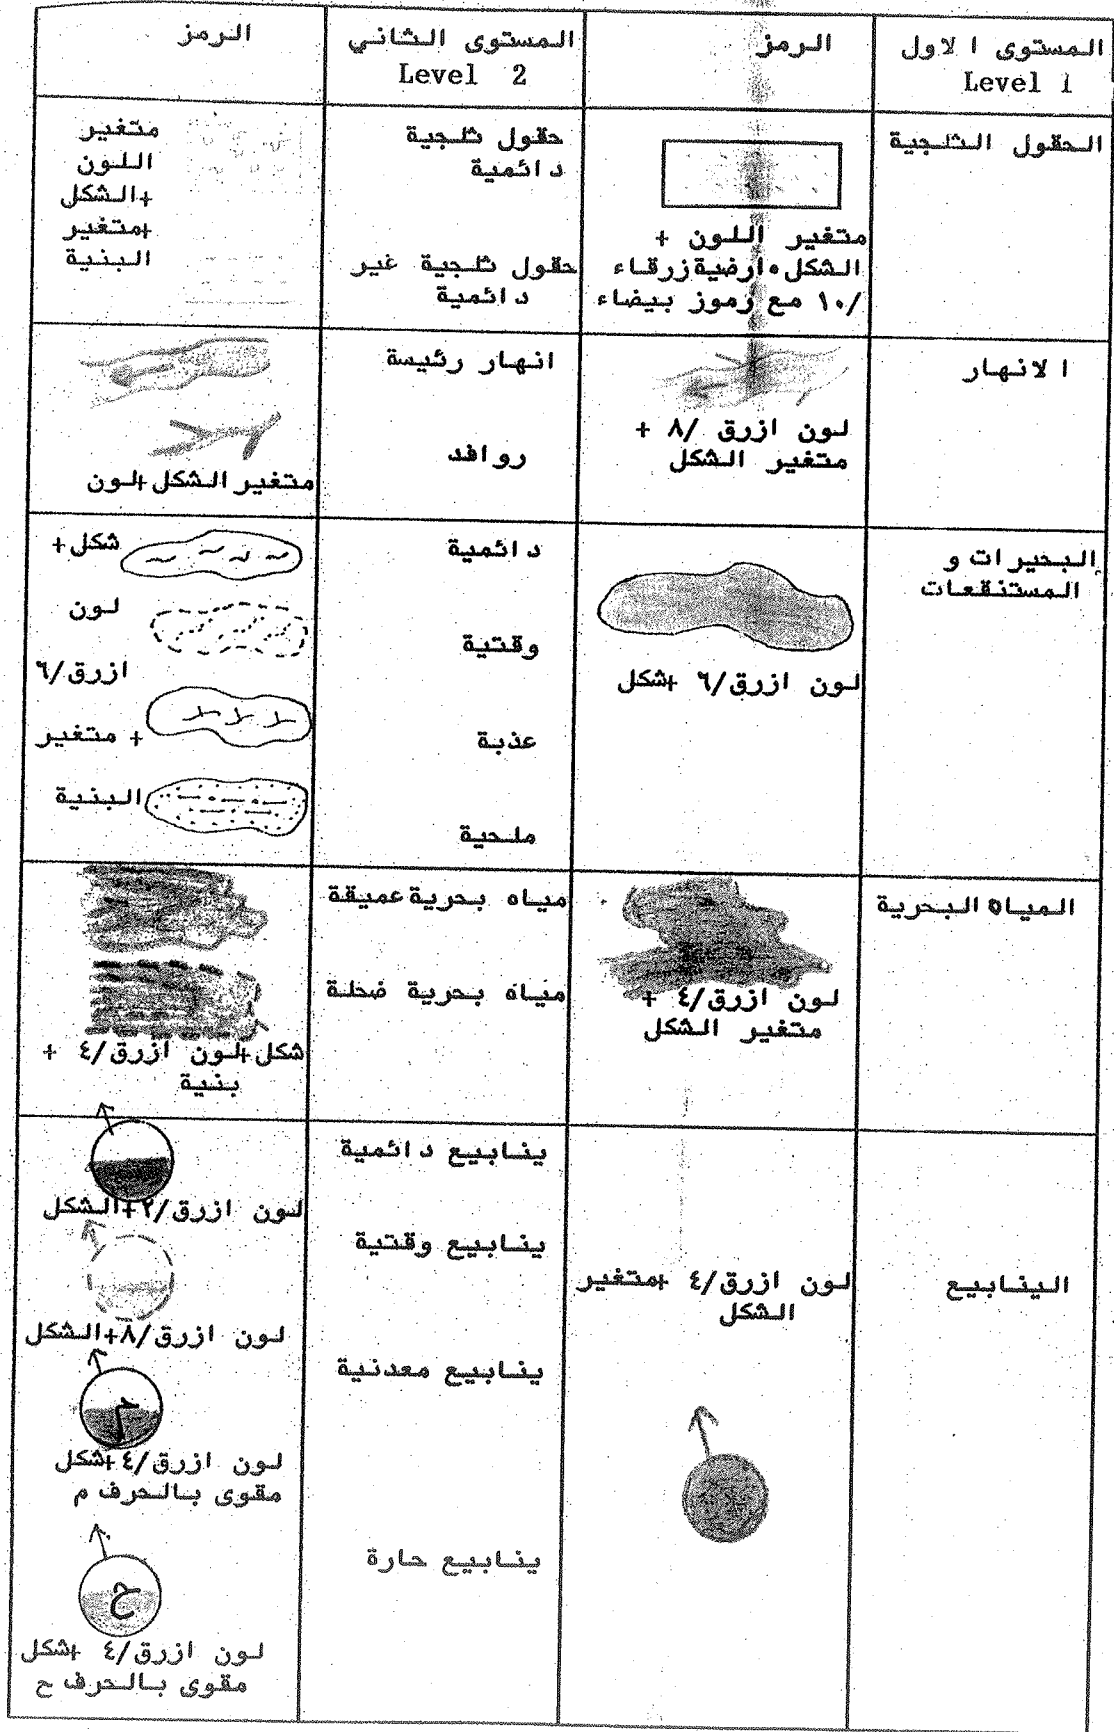 المستوى الاول
Level 1
الرمز
المستوى الثاني
Level 2
الرمز
الحقول الثلجية
متغير اللون +
الشكل٠ارضية زرقاء
/١٠ مع رموز بيضاء
حقول ثلجية
دائمية
حقول ثلجية غير
دائمية
متغير
اللون
+الشكل
+متغير
البنية
الانهار
لون ازرق /٨ +
متغير الشكل
انهار رئيسة
روافد
متغير الشكل+لون
البحيرات و
المستنقعات
لون ازرق/٦ +شكل
دائمية
وقتية
عذبة
ملحية
شكل+
لون
ازرق/٦
+ متغير
البنية
المياه البحرية
لون ازرق/٤ +
متغير الشكل
مياه بحرية عميقة
مياه بحرية ضحلة
شكل+لون ازرق/٤ +
بنية
الينابيع
لون ازرق/٤ +متغير
الشكل
ينابيع دائمية
ينابيع وقتية
ينابيع معدنية
ينابيع حارة
لون ازرق/٢+الشكل
لون ازرق/٨+الشكل
م
لون ازرق/٤+شكل
مقوى بالحرف م
ح
لون ازرق/٤ +شكل
مقوى بالحرف ح